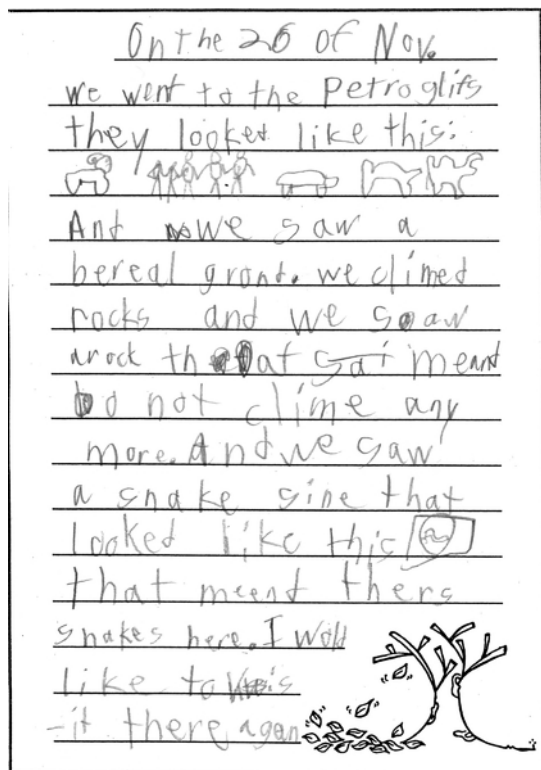 On the 26 of Nov.
we went to the Petroglifs
they looket like this:
And we saw a
bereal gront. we climed
rocks and we saw
a rock that meant
do not clime any
more. And we saw
a snake sine that
looket like this
that meend thers
snakes here. I wold
like to vis
-it there agan